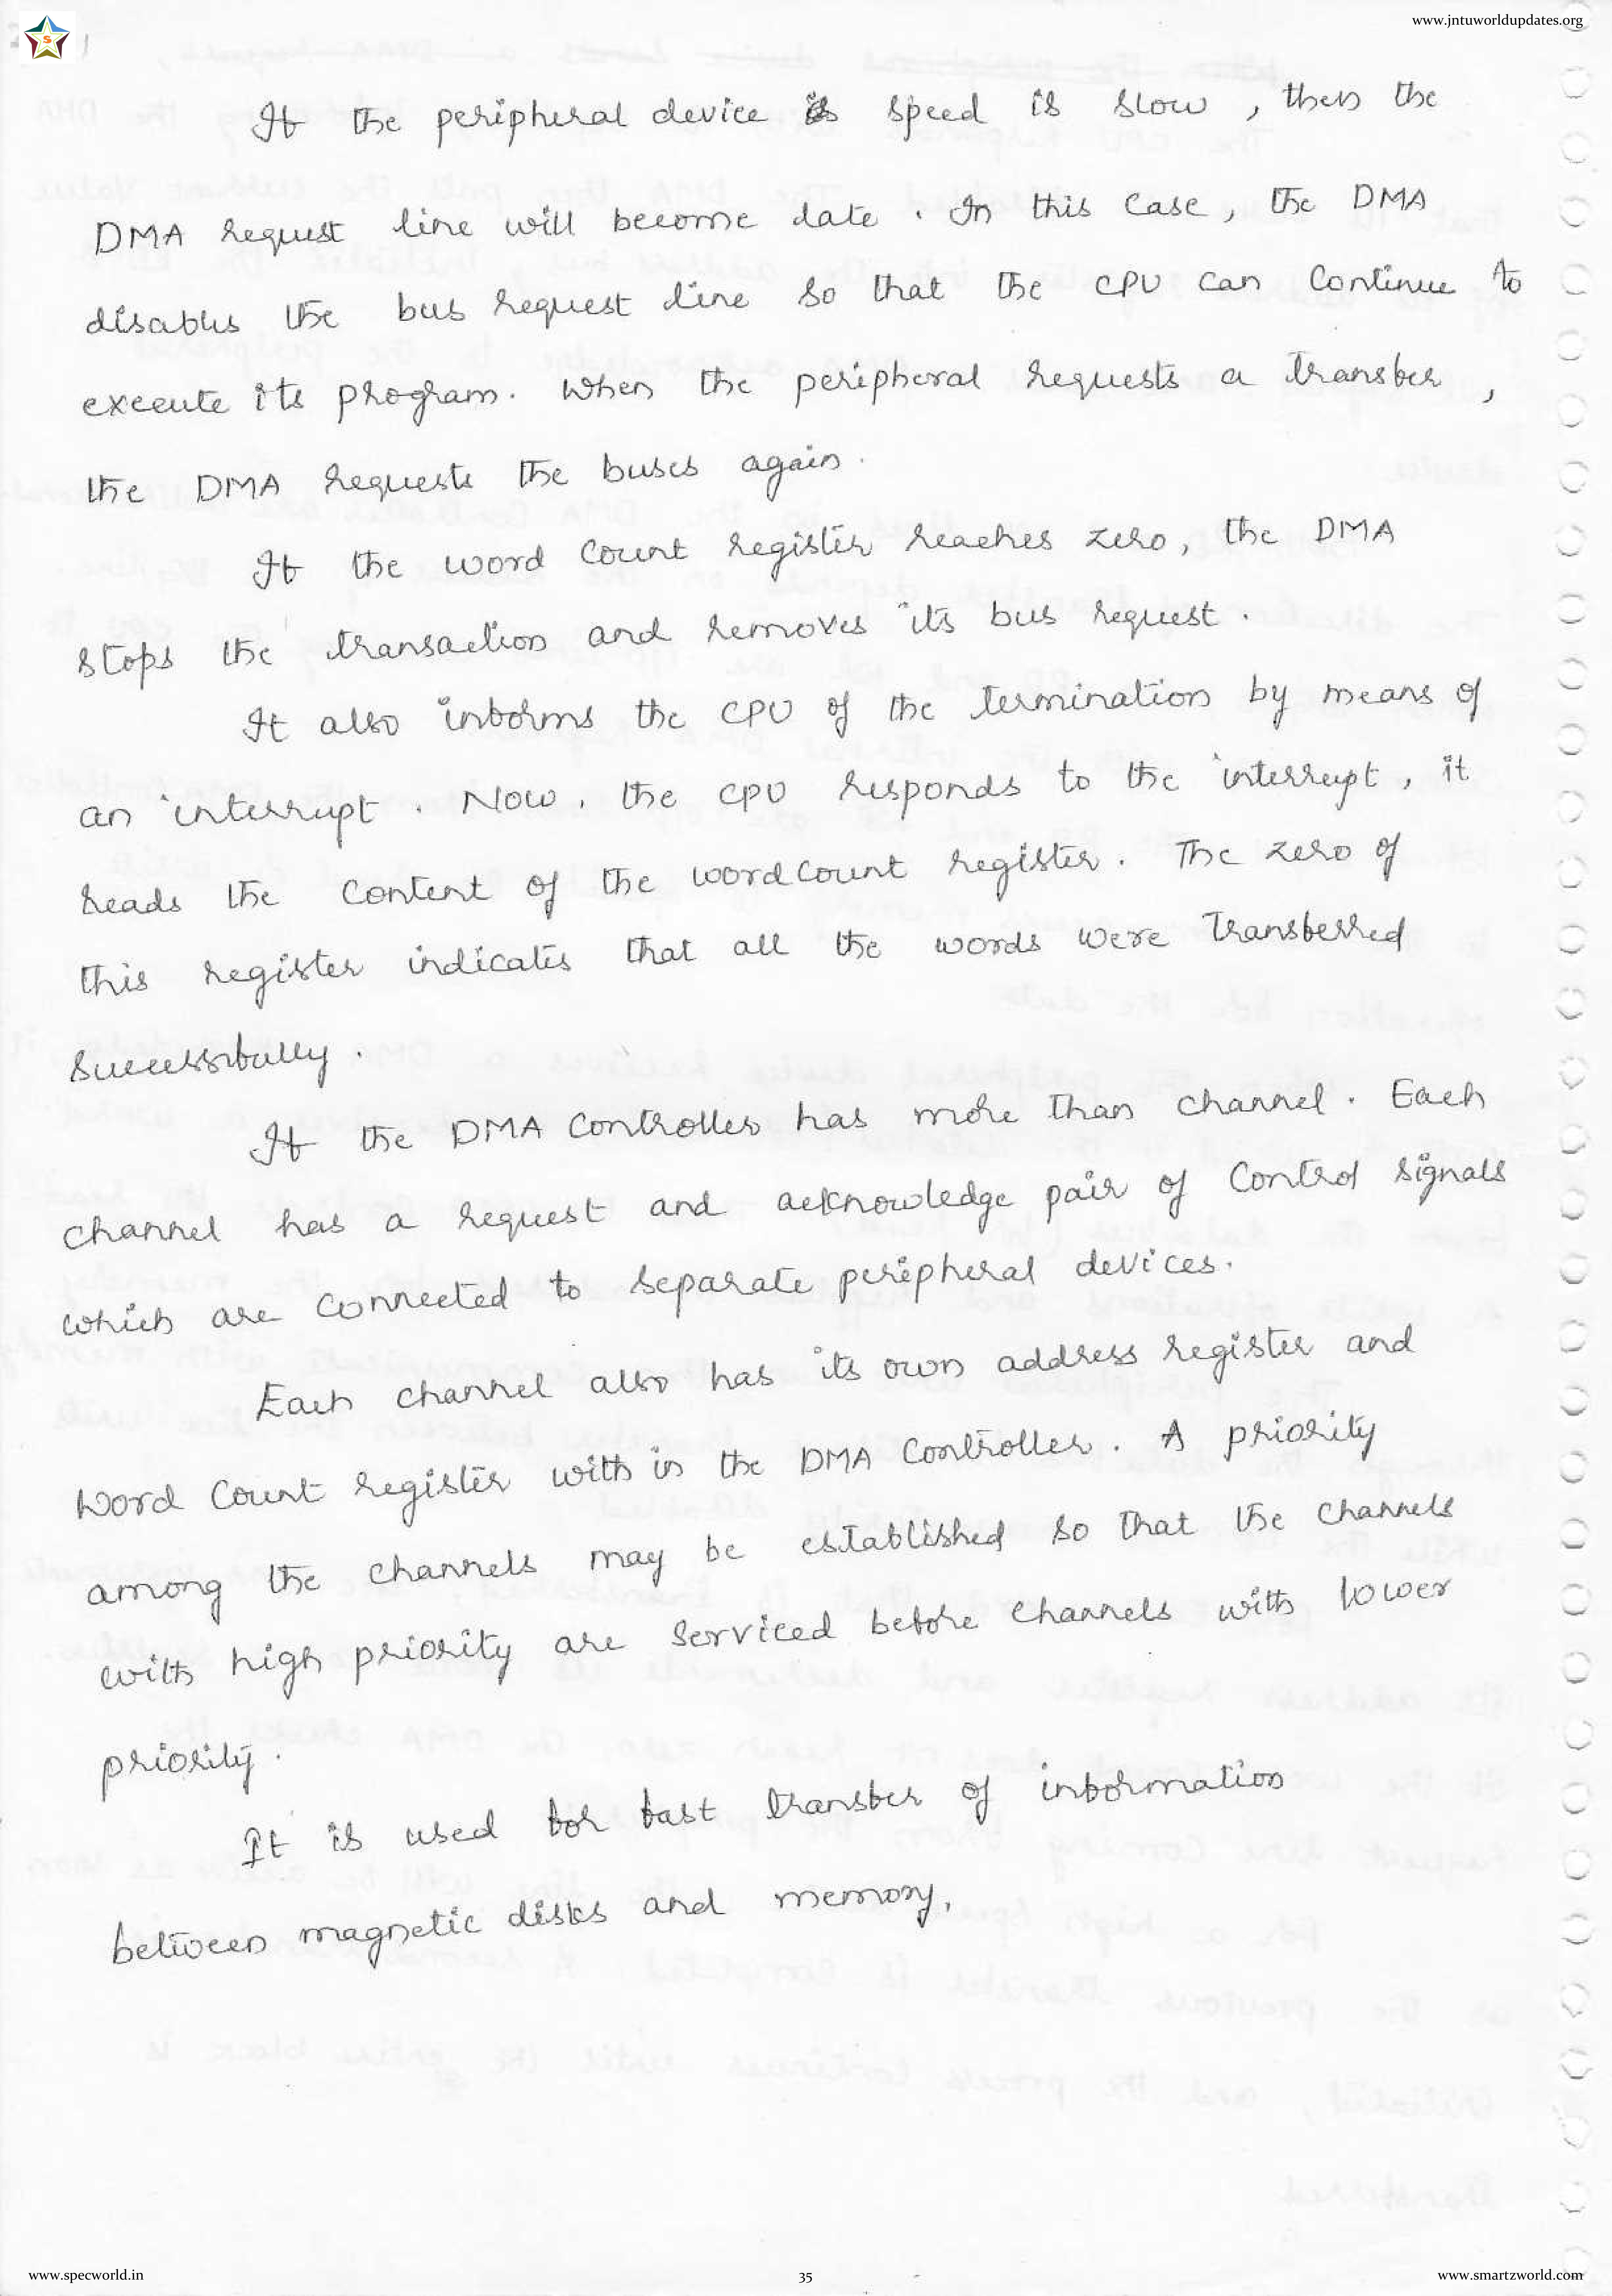 www.jntuworldupdates.org
If the peripheral device is speed is slow, then the
DMA request line will become date. In this case, the DMA
disables the bus request line so that the CPU can continue to
execute its program. When the peripheral requests a transfer,
the DMA requests the buses again.
If the word count register reaches zero, the DMA
stops the transaction and removes its bus request.
It also informs the CPU of the termination by means of
an interrupt. Now, the CPU responds to the interrupt, it
reads the content of the wordcount register. The zero of
this register indicates that all the words were transferred
successfully.
If the DMA controller has more than channel. Each
channel has a request and acknowledge pair of control signals
which are connected to separate peripheral devices.
Each channel also has its own address register and
word count register with in the DMA controller. A priority
among the channels may be established so that the channels
with high priority are serviced before channels with lower
priority.
It is used for fast transfer of information
between magnetic disks and memory.
www.specworld.in 35 www.smartzworld.com